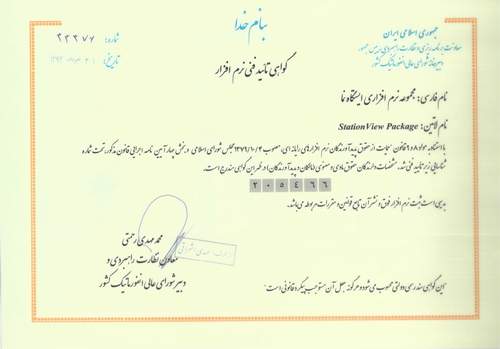 بنام خدا
جمهوری اسلامی ایران
معاونت برنامه ریزی و نظارت راهبردی رییس جمهور
دبیرخانه شورای عالی انفورماتیک کشور
شماره:
تاریخ:
گواهی تأیید فنی نرم افزار
نام فارسی: مجموعه نرم افزاری ایستگاه نما
نام لاتین: StationView Package
با استناد به مواد ۸ و ۹ قانون حمایت از حقوق پدیدآورندگان نرم افزارهای رایانه ای، مصوب ۱۳۷۹/۱۰/۴ مجلس شورای اسلامی و بخش چهار آیین نامه اجرایی قانون مذکور، تحت شماره
شناسایی زیر تأیید فنی شد. مشخصات دارندگان حقوق مادی و معنوی (مالکان و پدیدآورندگان) در ظهر این گواهی مندرج است.
۲۰۵۴۶۶
بدیهی است ثبت نرم افزار فوق و نشر آن تابع قوانین و مقررات مربوطه می‌باشد.
محمد مهدی رحمتی
معاون نظارت راهبردی و
دبیر شورای عالی انفورماتیک کشور
"این گواهی سند رسمی دولتی محسوب می شود و هرگونه جعل آن مستوجب پیگرد قانونی است."